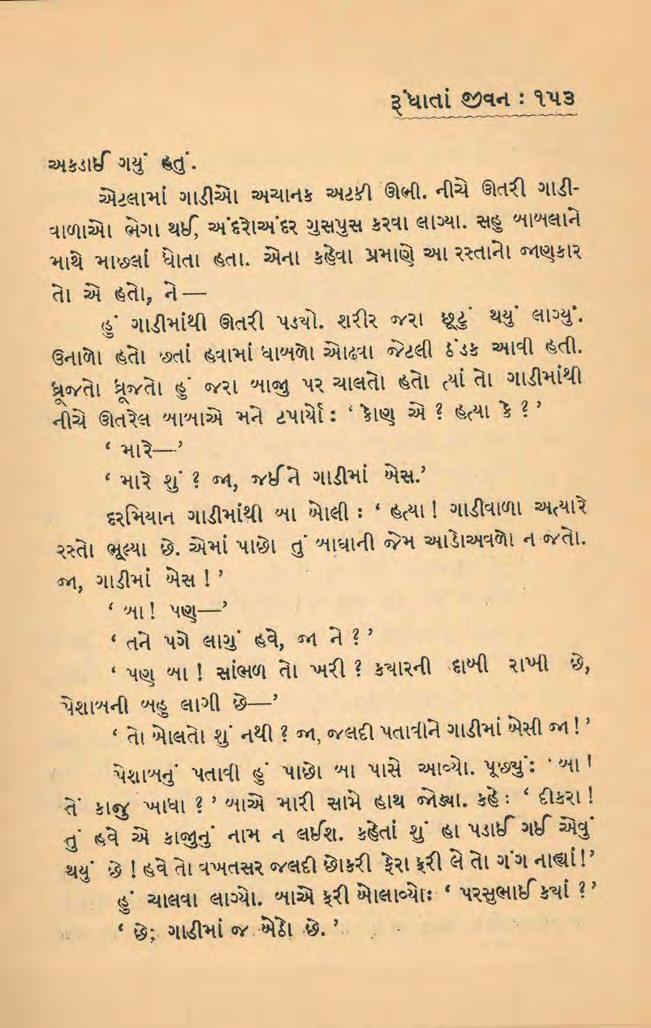 રૂંધાતાં જીવન : ૧૫૩
અકડાઈ ગયું હતું.
એટલામાં ગાડીઓ અચાનક અટકી ઊભી. નીચે ઊતરી ગાડી-
વાળાઓ ભેગા થઈ, અંદરોઅંદર ગુસપુસ કરવા લાગ્યા. સહુ બાબલાને
માથે માછલાં ધોતા હતા. એના કહેવા પ્રમાણે આ રસ્તાનો જાણકાર
તો એ હતો, ને —
હું ગાડીમાંથી ઊતરી પડયો. શરીર જરા છૂટું થયું લાગ્યું.
ઉનાળો હતો છતાં હવામાં ધાબળો ઓઢવા જેટલી ઠંડક આવી હતી.
ધ્રૂજતો ધ્રૂજતો હું જરા બાજુ પર ચાલતો હતો ત્યાં તો ગાડીમાંથી
નીચે ઊતરેલ બાબાએ મને ટપાર્યો : ‘ કોણ એ ? હત્યા કે ? ’
‘ મારે—’
‘ મારે શું ? જા, જઈને ગાડીમાં બેસ.’
દરમિયાન ગાડીમાંથી બા બોલી : ‘ હત્યા ! ગાડીવાળા અત્યારે
રસ્તો ભૂલ્યા છે. એમાં પાછો તું બાઘાની જેમ આડોઅવળો ન જતો.
જા, ગાડીમાં બેસ ! ’
‘ બા ! પણ—’
‘ તને પગે લાગું હવે, જા ને ? ’
‘ પણ બા ! સાંભળ તો ખરી ? કયારની દાબી રાખી છે,
પેશાબની બહુ લાગી છે—’
‘ તો બોલતો શું નથી ? જા, જલદી પતાવીને ગાડીમાં બેસી જા ! ’
પેશાબનું પતાવી હું પાછો બા પાસે આવ્યો. પૂછ્યું : ‘ બા !
તેં કાજુ ખાધા ? ’ બાએ મારી સામે હાથ જોડ્યા. કહે : ‘ દીકરા !
તું હવે એ કાજુનું નામ ન લઈશ. કહેતાં શું હા પડાઈ ગઈ એવું
થયું છે ! હવે તો વખતસર જલદી છોકરી ફેરા ફરી લે તો ગંગ નાહ્યાં ! ’
હું ચાલવા લાગ્યો. બાએ ફરી બોલાવ્યો : ‘ પરસુભાઈ કયાં ? ’
‘ છે; ગાડીમાં જ બેઠો છે. ’